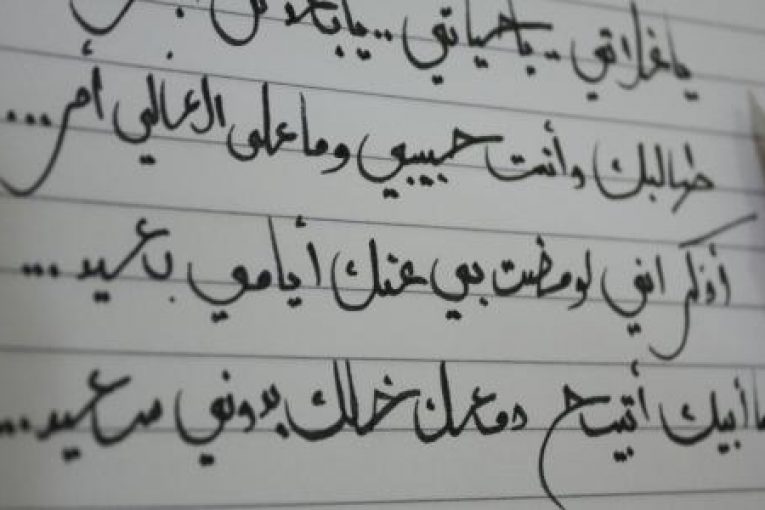 يا غلاتي .. يا حياتي .. يا
طالبك وأنت حبيبي وما على الغالي أمر ...
أذكر اني لو مضت بي عنك أيامي بعيد ...
ما أبيك أتيح دمعك خلك بدوني سعيد ...